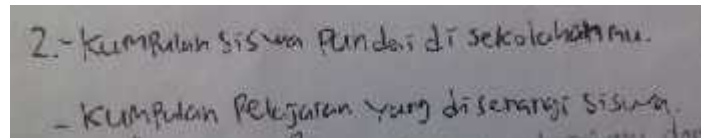 2.- Kumpulan siswa Pandai di sekolahanmu.
- Kumpulan Pelajaran yang disenangi siswa.